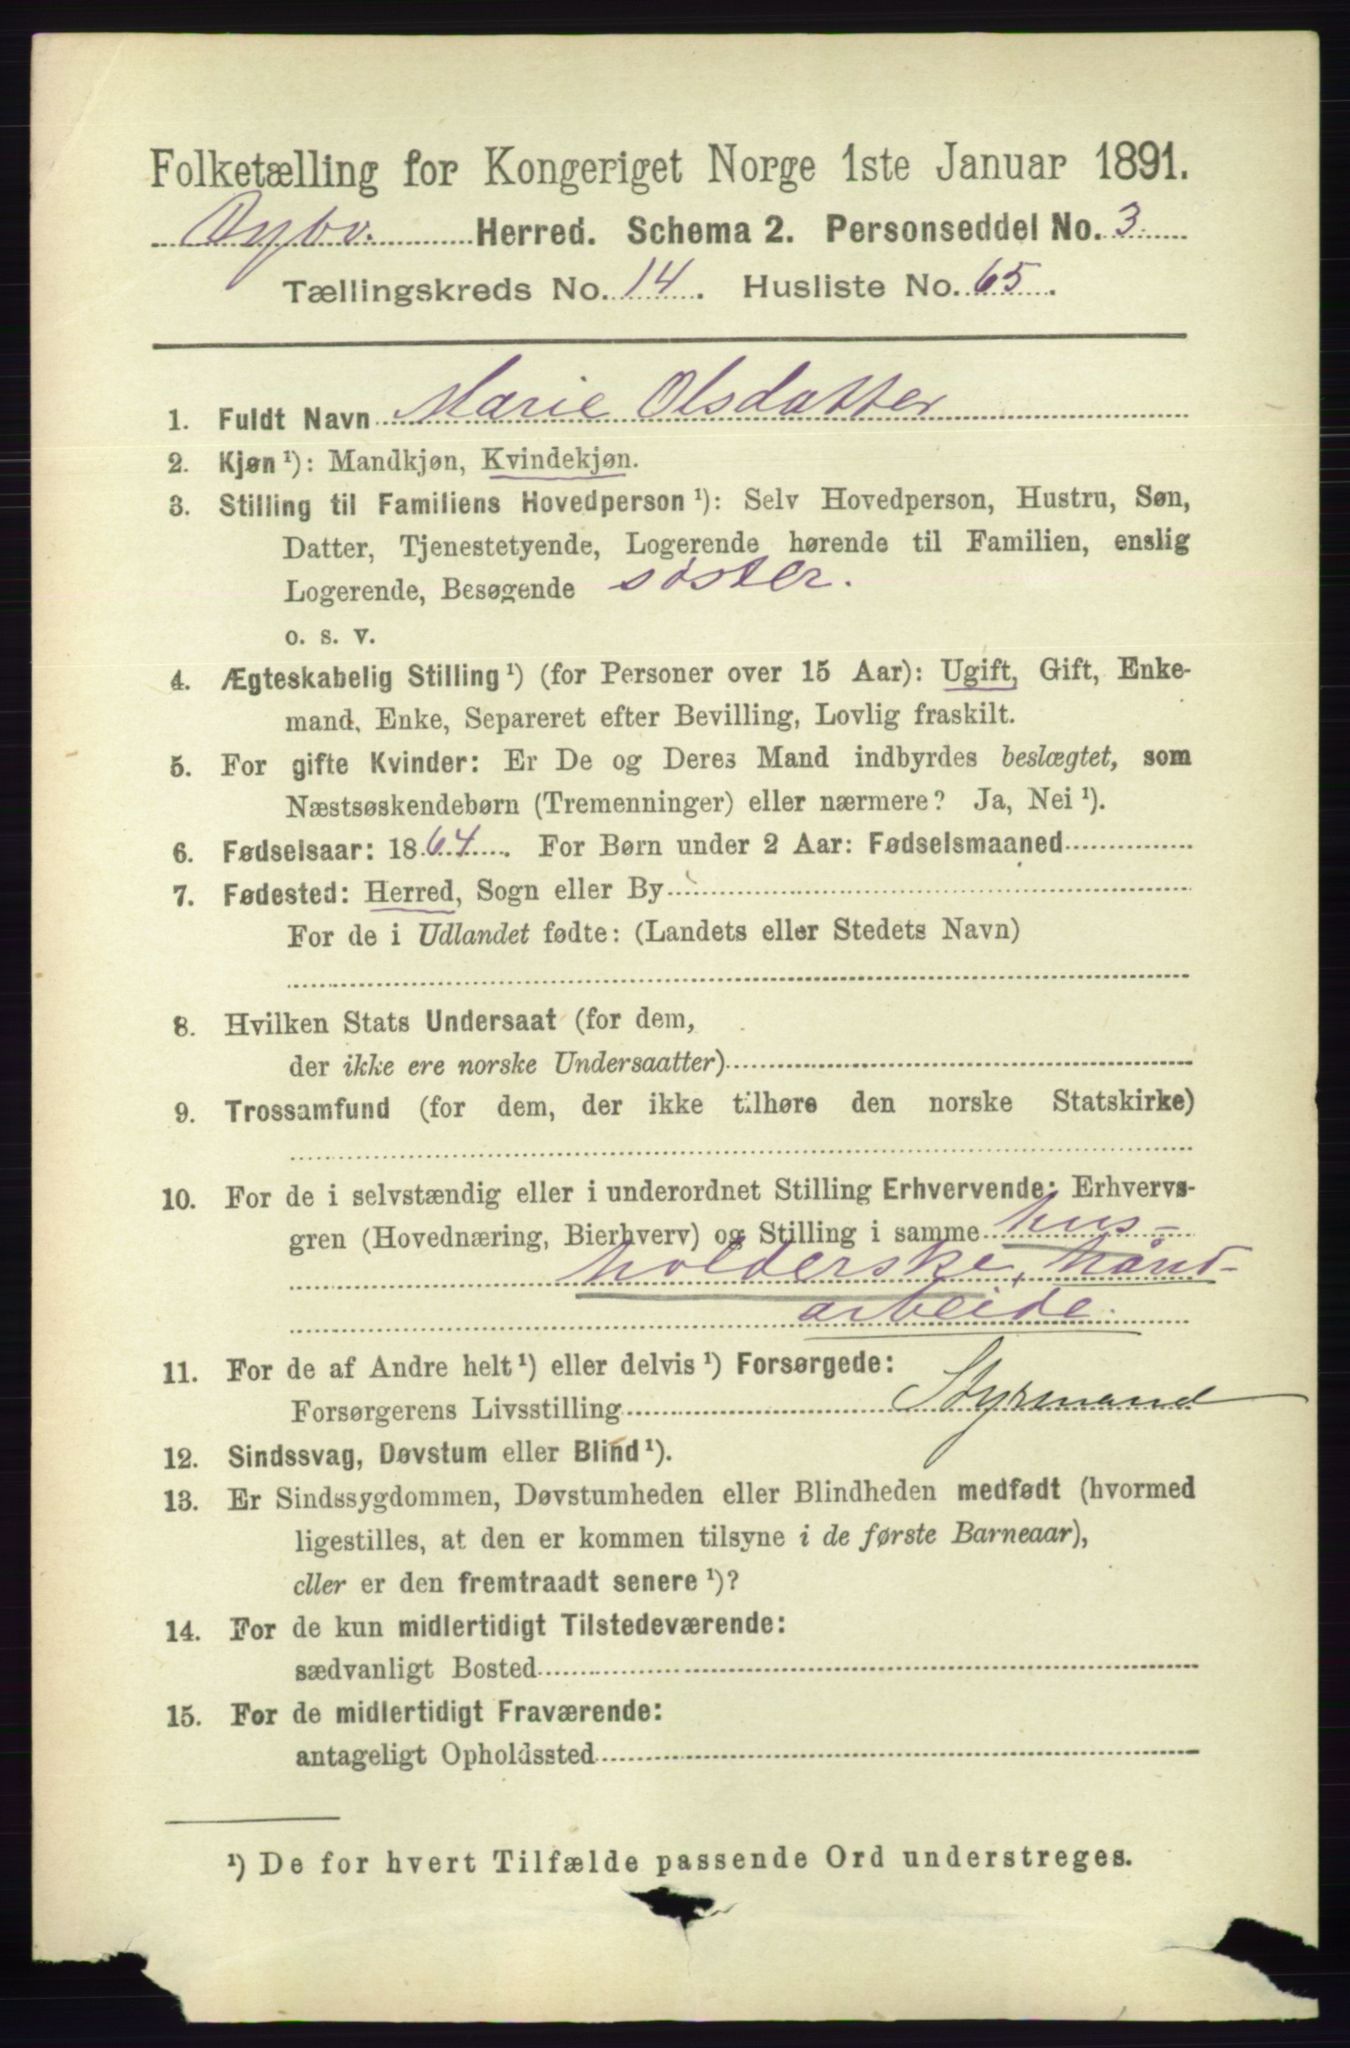 Folketælling for Kongeriget Norge 1ste Januar 1891.
Dybv. Herred. Schema 2. Personseddel No. 3
Tællingskreds No. 14. Husliste No. 65.
1. Fuldt Navn Marie Olsdatter
2. Kjøn ¹): Mandkjøn, Kvindekjøn.
3. Stilling til Familiens Hovedperson ¹): Selv Hovedperson, Hustru, Søn,
Datter, Tjenestetyende, Logerende hørende til Familien, enslig
Logerende, Besøgende søster.
o. s. v.
4. Ægteskabelig Stilling ¹) (for Personer over 15 Aar): Ugift, Gift, Enke-
mand, Enke, Separeret efter Bevilling, Lovlig fraskilt.
5. For gifte Kvinder: Er De og Deres Mand indbyrdes beslægtet, som
Næstsøskendebørn (Tremenninger) eller nærmere? Ja, Nei ¹).
6. Fødselsaar: 1864. For Børn under 2 Aar: Fødselsmaaned
7. Fødested: Herred, Sogn eller By
For de i Udlandet fødte: (Landets eller Stedets Navn)
8. Hvilken Stats Undersaat (for dem,
der ikke ere norske Undersaatter)
9. Trossamfund (for dem, der ikke tilhøre den norske Statskirke)
10. For de i selvstændig eller i underordnet Stilling Erhvervende: Erhvervs-
gren (Hovednæring, Bierhverv) og Stilling i samme hus-
holderske, hånd-
arbeide.
11. For de af Andre helt ¹) eller delvis ¹) Forsørgede:
Forsørgerens Livsstilling Styrmand
12. Sindssvag, Døvstum eller Blind ¹).
13. Er Sindssygdommen, Døvstumheden eller Blindheden medfødt (hvormed
ligestilles, at den er kommen tilsyne i de første Barneaar),
eller er den fremtraadt senere ¹)?
14. For de kun midlertidigt Tilstedeværende:
sædvanligt Bosted
15. For de midlertidigt Fraværende:
antageligt Opholdssted
¹) De for hvert Tilfælde passende Ord understreges.